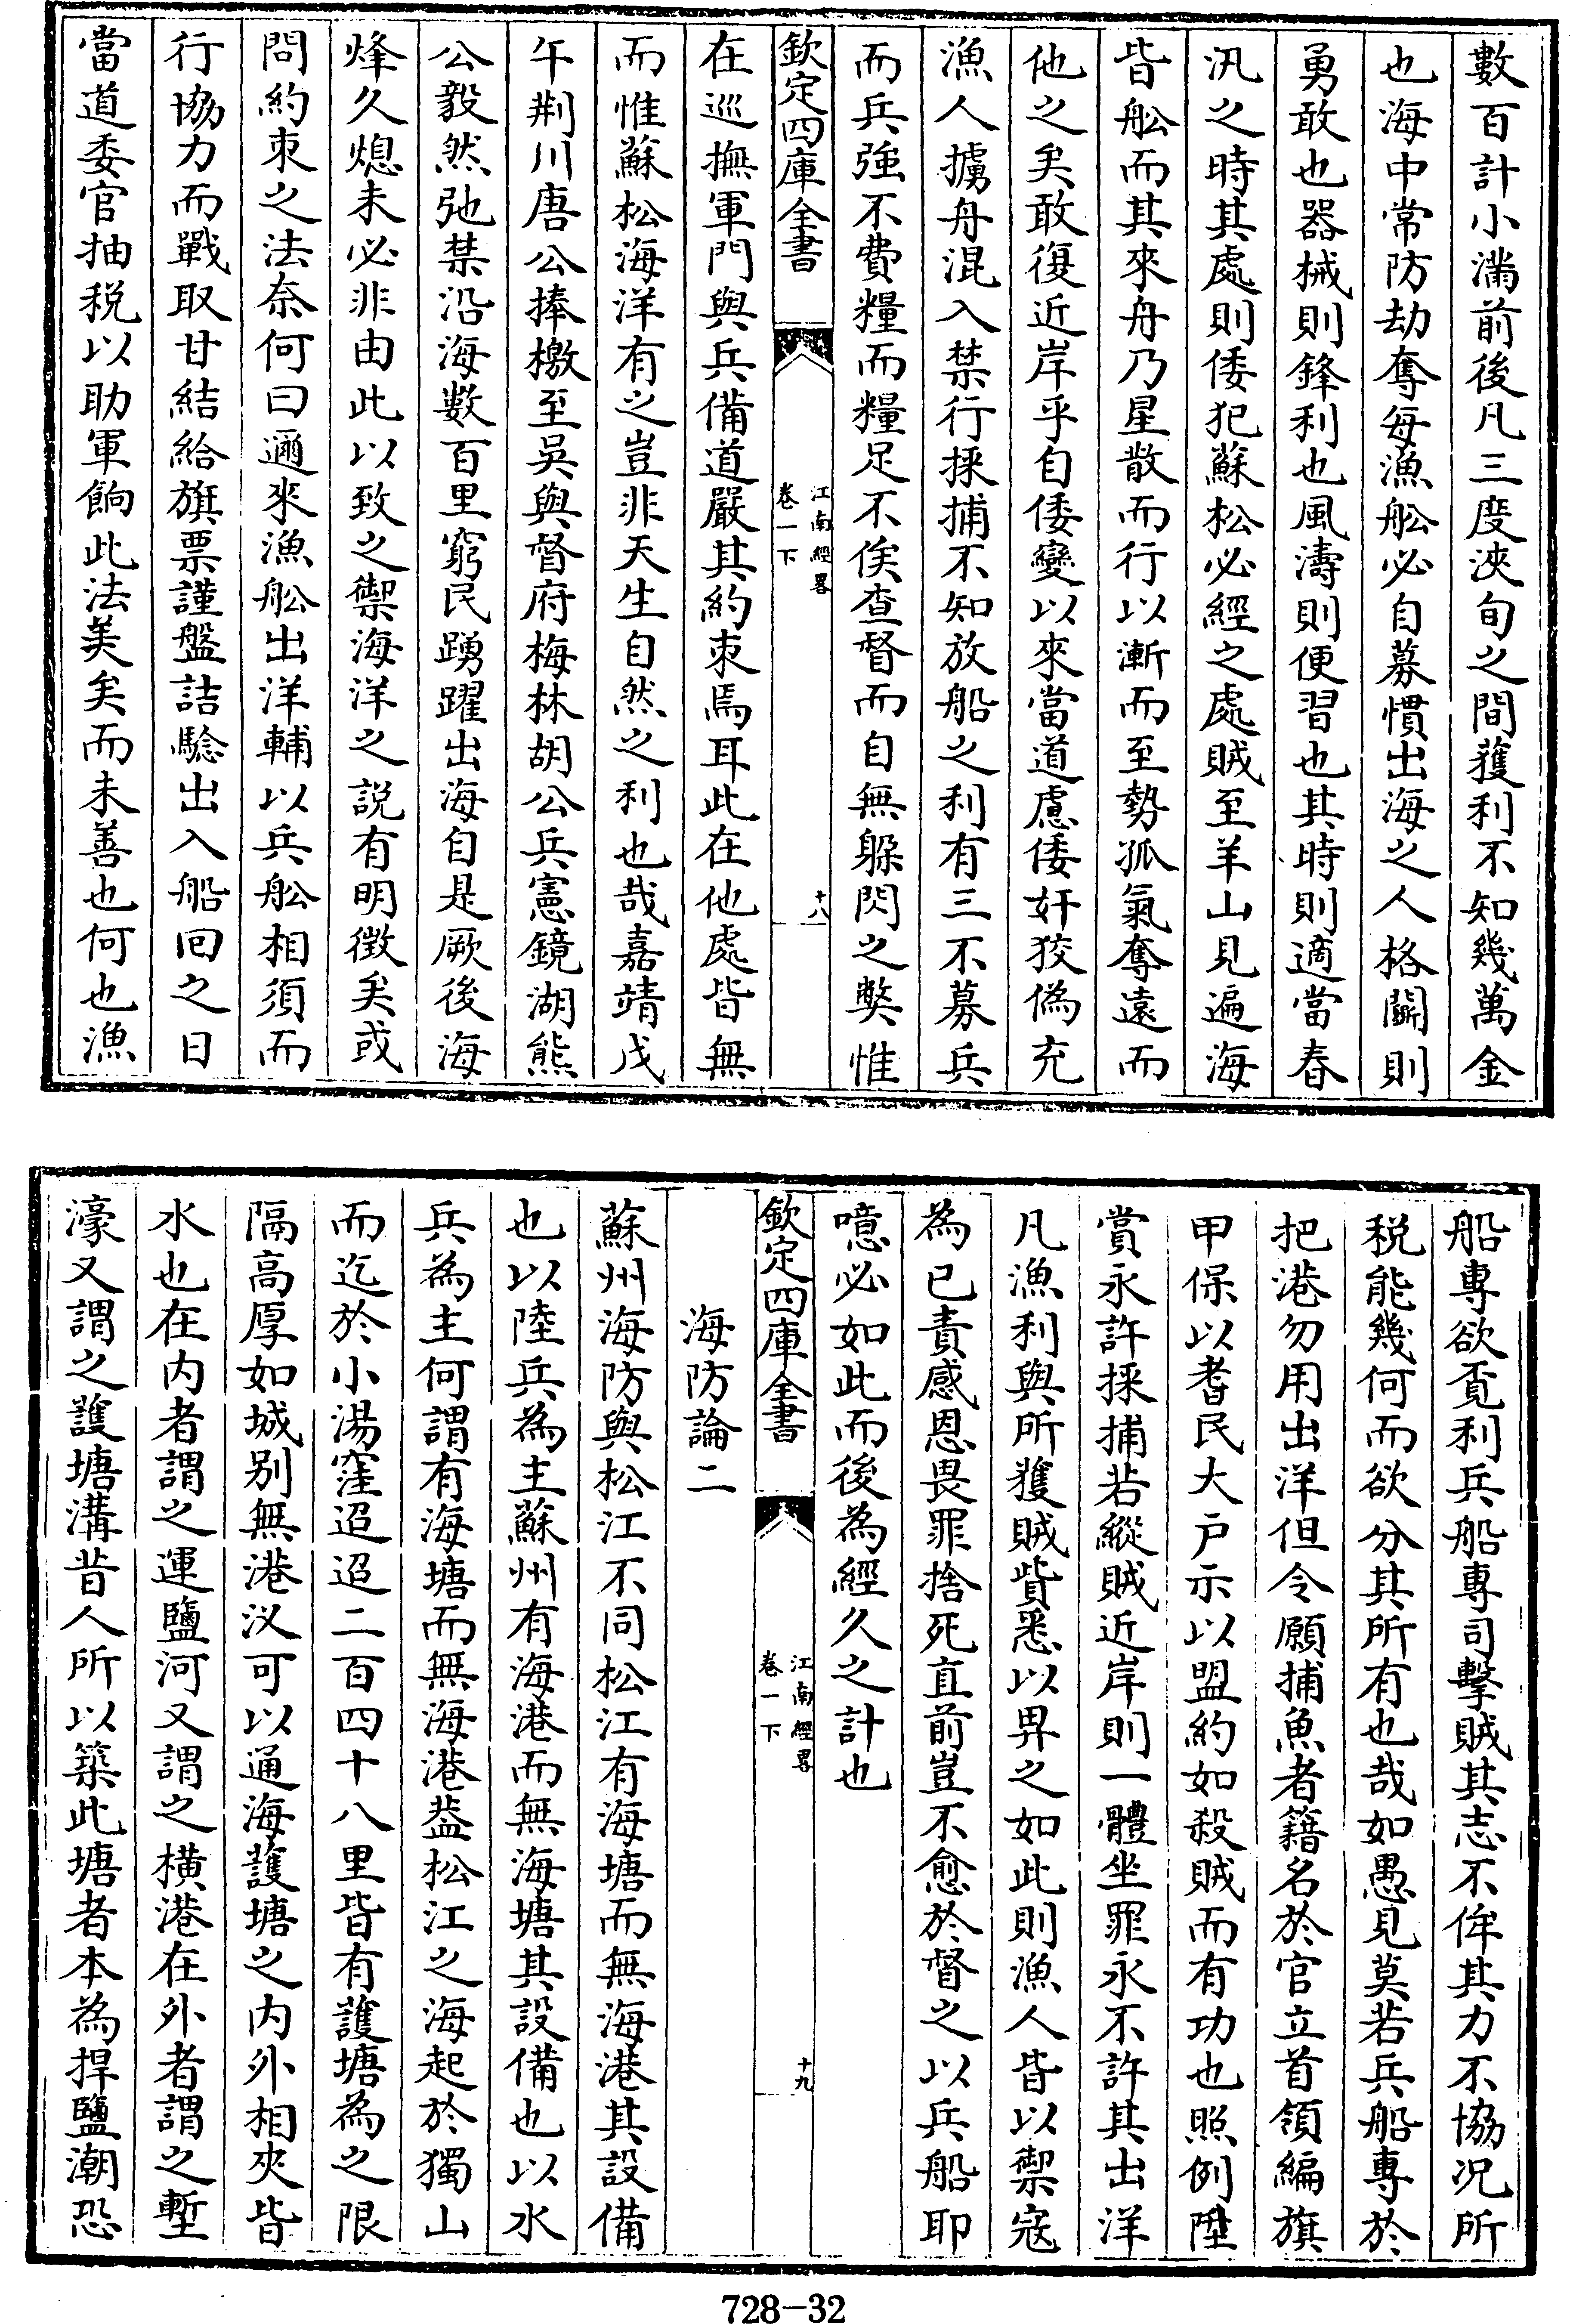 數百計小滿前後凡三度浹旬之間獲利不知幾萬金
也海中常防劫奪每漁舩必自募慣出海之人格鬭則
勇敢也器械則鋒利也風濤則便習也其時則適當春
汛之時其處則倭犯蘇松必經之處賊至羊山見遍海
皆舩而其來舟乃星散而行以漸而至勢孤氣奪遠而
他之矣敢復近岸乎自倭變以來當道慮倭奸狡偽充
漁人擄舟混入禁行採捕不知放船之利有三不募兵
而兵強不費糧而糧足不俟查督而自無躲閃之獘惟
欽定四庫全書
江南經畧
卷一下
十八
在巡撫軍門與兵備道嚴其約束焉耳此在他處皆無
而惟蘇松海洋有之豈非天生自然之利也哉嘉靖戊
午荆川唐公捧檄至吳與督府梅林胡公兵憲鏡湖熊
公毅然弛禁沿海數百里窮民踴躍出海自是厥後海
烽久熄未必非由此以致之禦海洋之說有明徵矣或
問約束之法奈何曰邇來漁舩出洋輔以兵舩相須而
行協力而戰取甘結給旗票謹盤詰驗出入船囘之日
當道委官抽稅以助軍餉此法美矣而未善也何也漁
船專欲覔利兵船專司擊賊其志不侔其力不協况所
稅能幾何而欲分其所有也哉如愚見莫若兵船專於
把港勿用出洋但令願捕魚者籍名於官立首領編旗
甲保以耆民大户示以盟約如殺賊而有功也照例陞
賞永許採捕若縱賊近岸則一體坐罪永不許其出洋
凡漁利與所獲賊貲悉以畀之如此則漁人皆以禦寇
為已責感恩畏罪捨死直前豈不愈於督之以兵船耶
噫必如此而後為經久之計也
欽定四庫全書
江南經畧
卷一下
十九
海防論二
蘇州海防與松江不同松江有海塘而無海港其設備
也以陸兵為主蘇州有海港而無海塘其設備也以水
兵為主何謂有海塘而無海港葢松江之海起於獨山
而迄於小湯窪迢迢二百四十八里皆有護塘為之限
隔高厚如城别無港汊可以通海護塘之内外相夾皆
水也在内者謂之運鹽河又謂之橫港在外者謂之塹
濠又謂之護塘溝昔人所以築此塘者本為捍鹽潮恐
728-32